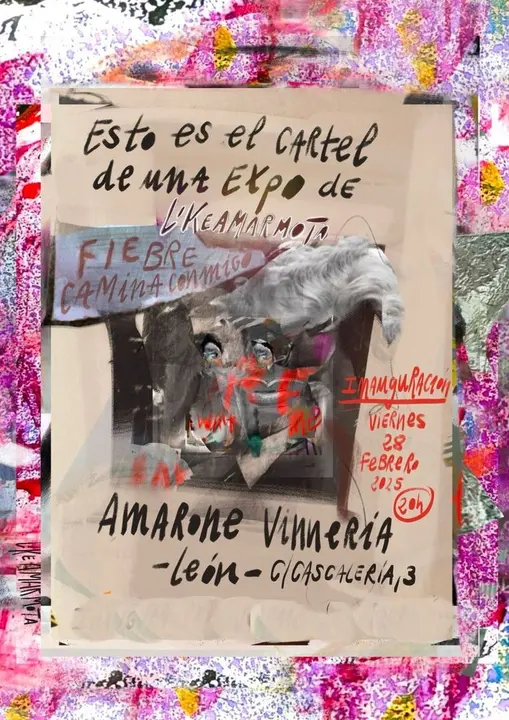 Esto es el CARTel
de unA Expo DE
L'IKEAMARMOTA
FIEBRE
CAMINA CONMIGO
INAUGURACION
VIERNES
28
FEBRERO
2025
20h
AMARONE VINNERÍA
-León- C/CASCALERÍA, 3
L'IKEAMARMOTA